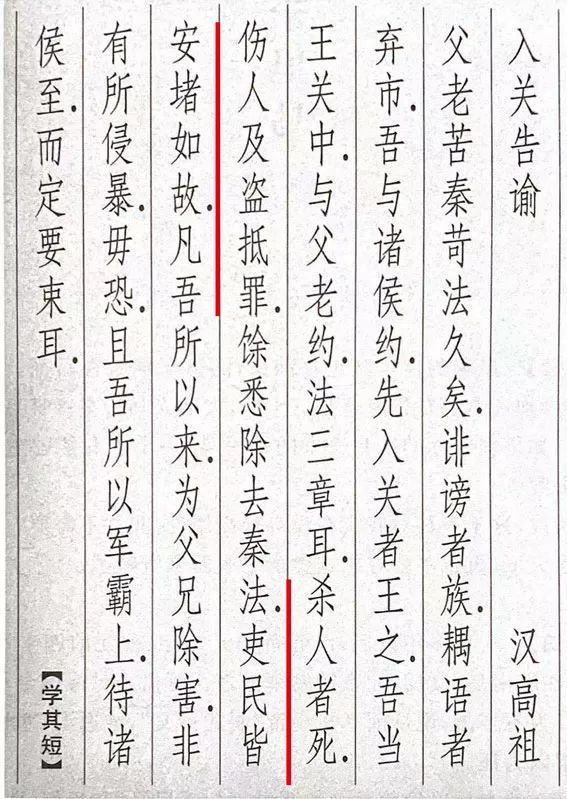 入关告谕 汉高祖
父老苦秦苛法久矣.诽谤者族.耦语者
弃市.吾与诸侯约.先入关者王之.吾当
王关中.与父老约.法三章耳.杀人者死.
伤人及盗抵罪.馀悉除去秦法.吏民皆
安堵如故.凡吾所以来.为父兄除害.非
有所侵暴.毋恐.且吾所以军霸上.待诸
侯至.而定要束耳.
【学其短】